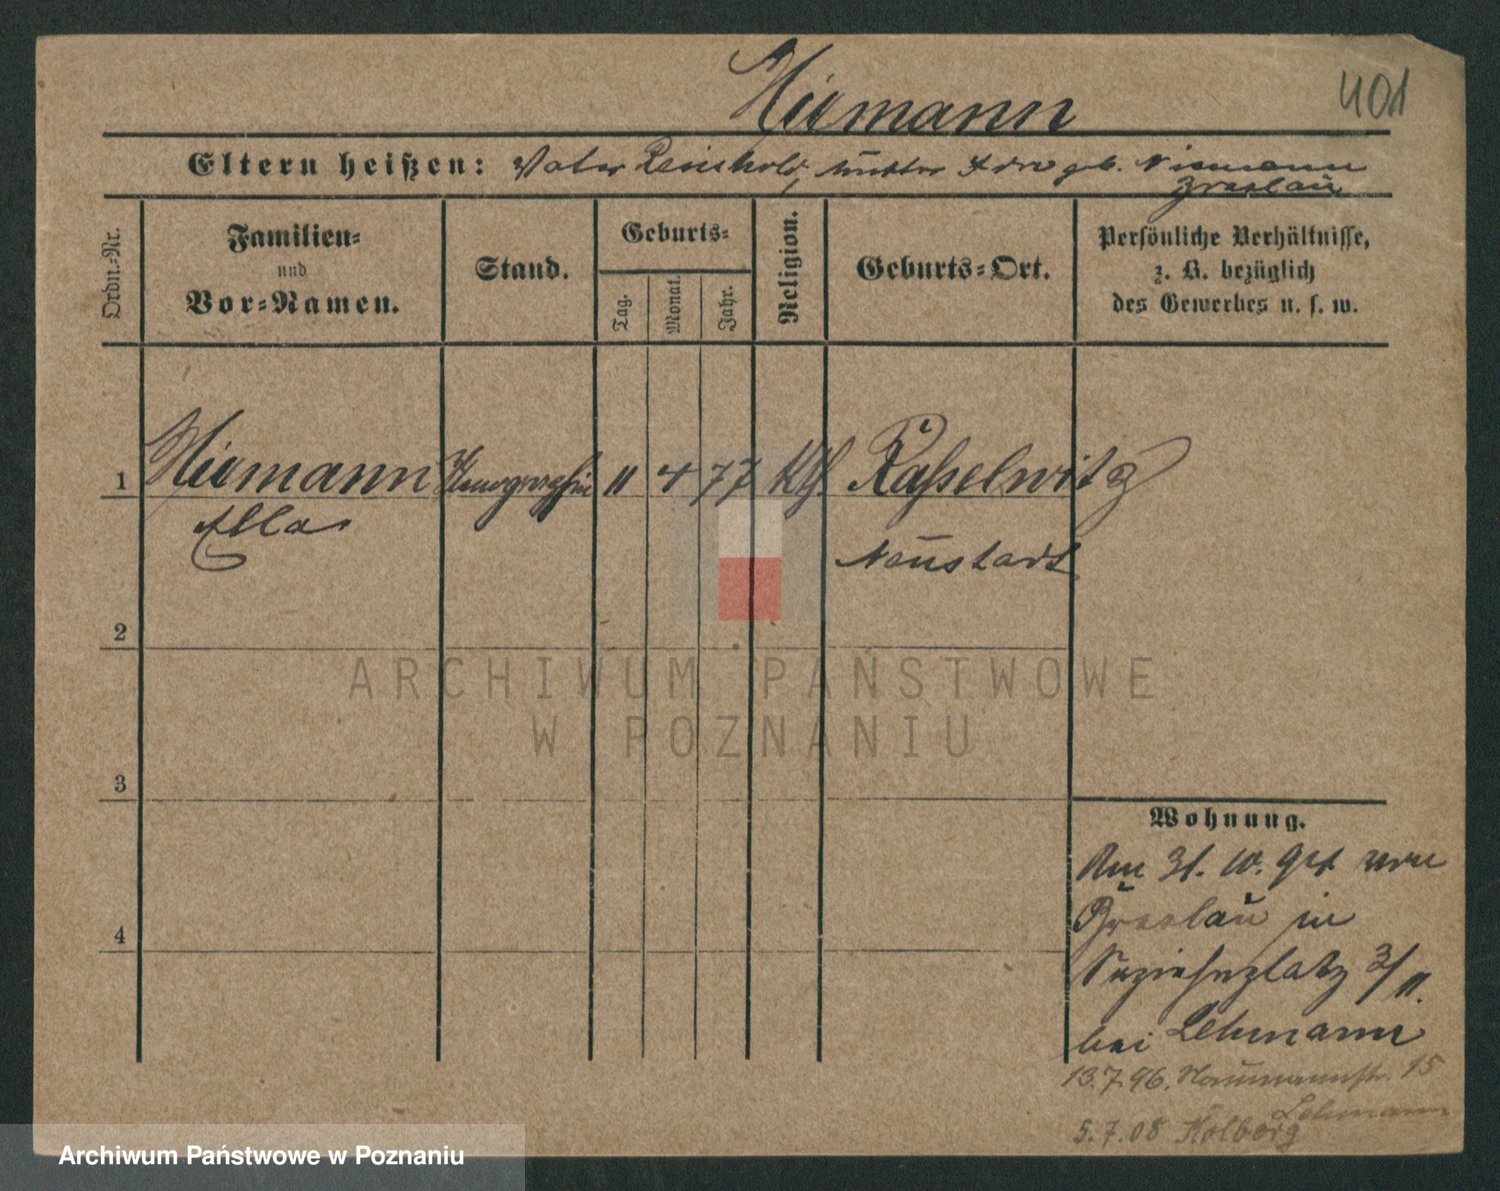 Niemann
401
Eltern heißen: Vater Reinhold, Mutter geb. Niemann
Breslau
Ordn.-Nr.
Familien-
und
Vor-Namen.
Stand.
Geburts-
Tag.
Monat.
Jahr.
Religion.
Geburts-Ort.
Persönliche Verhältnisse,
z. B. bezüglich
des Gewerbes u. s. w.
1 Niemann 11 4 77 Kth. Rasselwitz
Ella
Neustadt
2
3
4
Wohnung.
Am 31. 10. von
Breslau in
3/11.
bei Lehmann
13.7.96. Naumannstr. 15
Lehmann
5.7.08 Kolberg
ARCHIWUM PAŃSTWOWE
W POZNANIU
Archiwum Państwowe w Poznaniu